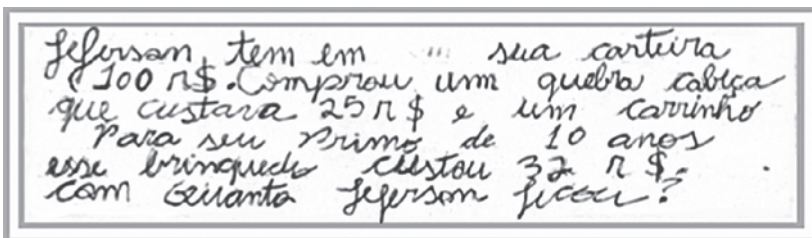 Jeferson tem em sua carteira
100 R$. Comprou um quebra cabeça
que custava 25 R$ e um carrinho
Para seu Primo de 10 anos
esse brinquedo custou 32 R$.
com quanto Jeferson ficou?